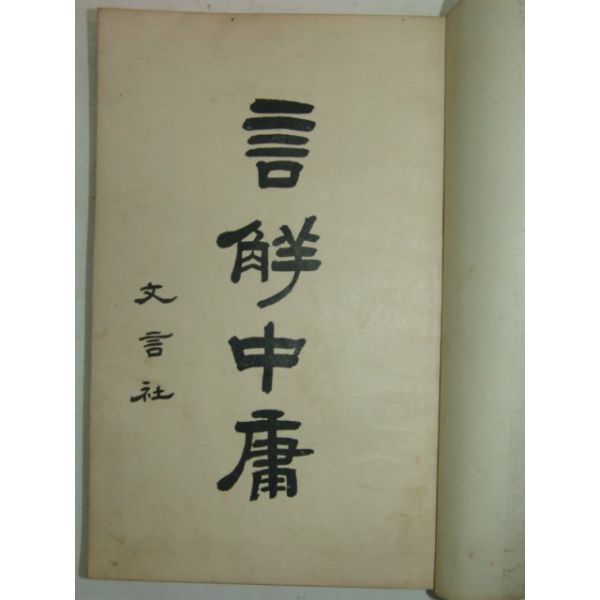 言觧中庸
文言社